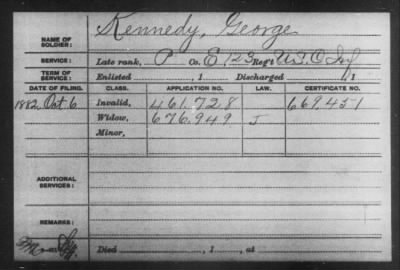 NAME OF SOLDIER: Kennedy, George
SERVICE: Late rank, P Co. E 123 Reg't U.S.C. Inf
TERM OF SERVICE: Enlisted , 1 Discharged , 1
DATE OF FILING. CLASS. APPLICATION NO. LAW. CERTIFICATE NO.
1882 Oct 6 Invalid, 461,728 669,451
Widow, 676,949 J
Minor,
ADDITIONAL SERVICES:
REMARKS:
Died , 1 , at